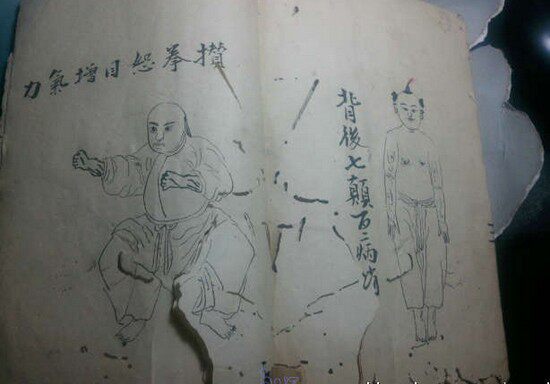 背後七顛百病消
攢拳恕目增氣力